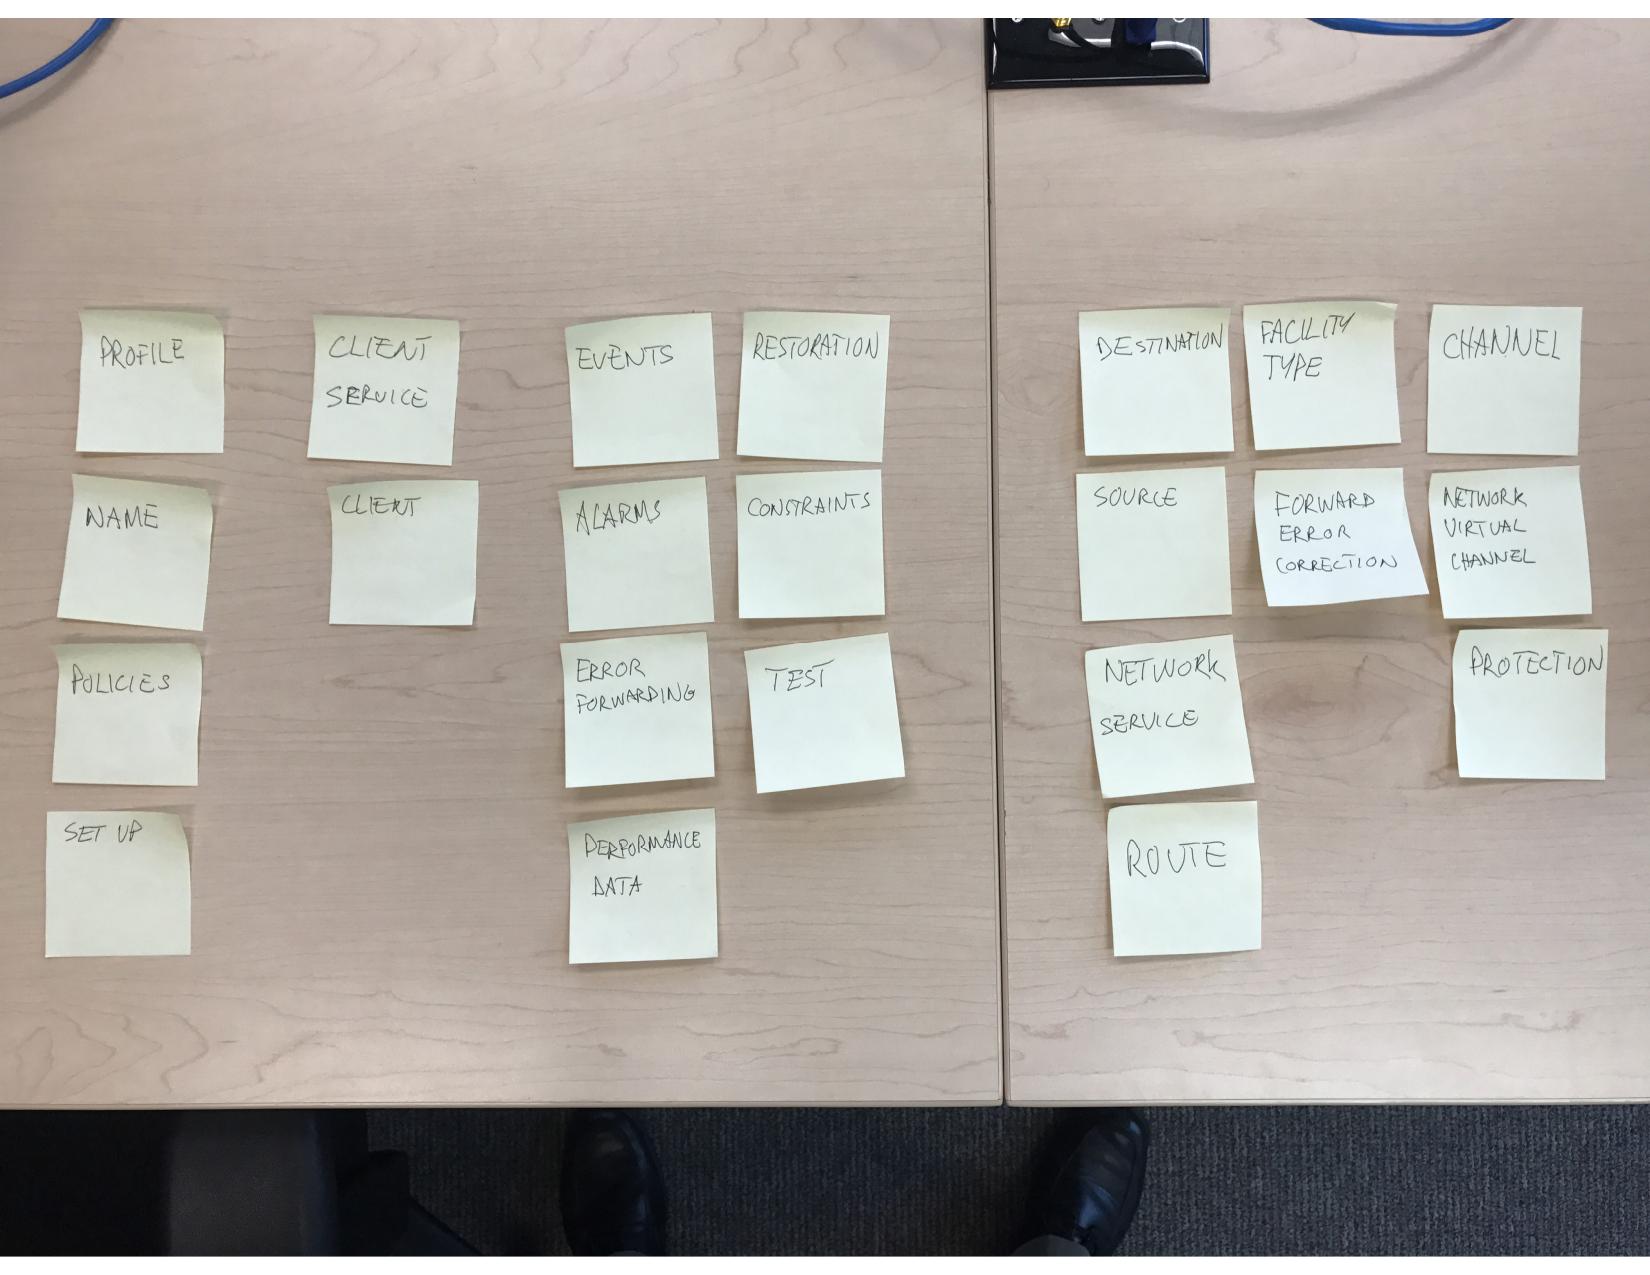 PROFILE
NAME
POLICIES
SET UP
CLIENT
SERVICE
CLIENT
EVENTS
ALARMS
ERROR
FORWARDING
PERFORMANCE
DATA
RESTORATION
CONSTRAINTS
TEST
DESTINATION
SOURCE
NETWORK
SERVICE
ROUTE
FACILITY
TYPE
FORWARD
ERROR
CORRECTION
CHANNEL
NETWORK
VIRTUAL
CHANNEL
PROTECTION